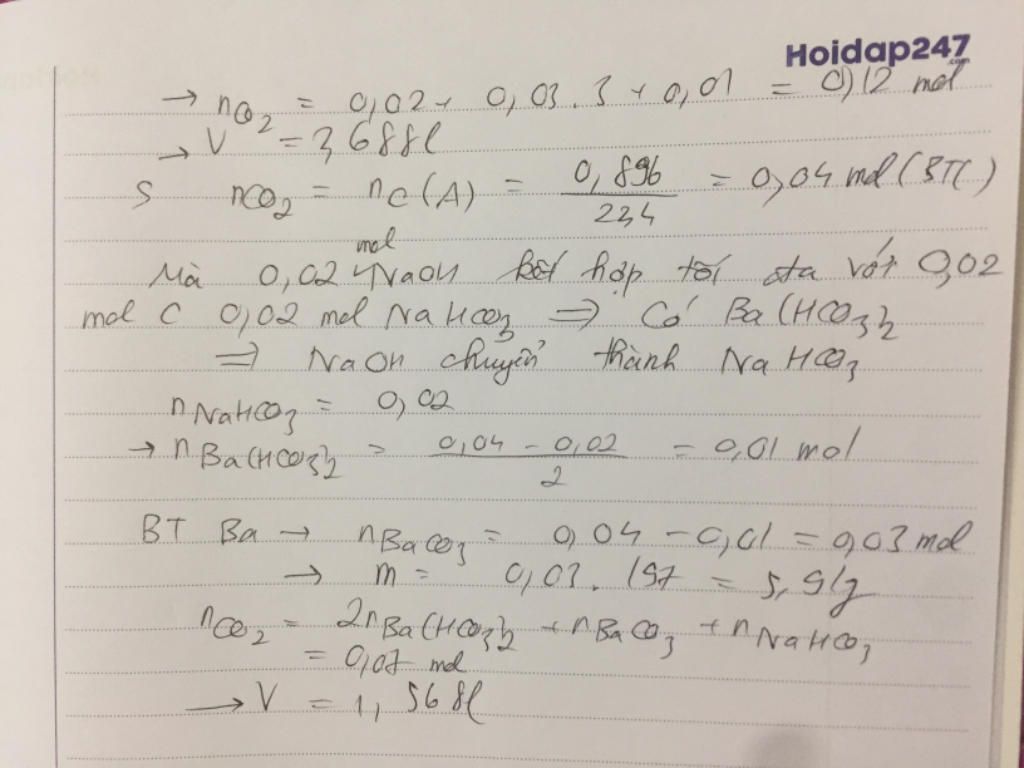 Hoidap247
.com
→ nO₂ = 0,02 + 0,03.3 + 0,01 = 0,12 mol
→ V = 2,688l
5 nCO₂ = nC(A) = 0,896/22,4 = 0,04 mol (BTC)
Mà 0,02 mol NaOH kết hợp tối đa với 0,02
mol C 0,02 mol NaHCO₃ ⇒ Có Ba(HCO₃)₂
⇒ NaOH chuyển thành NaHCO₃
nNaHCO₃ = 0,02
→ nBa(HCO₃)₂ = (0,04 - 0,02)/2 = 0,01 mol
BT Ba → nBaCO₃ = 0,04 - 0,01 = 0,03 mol
→ m = 0,03.197 = 5,91g
nCO₂ = 2nBa(HCO₃)₂ + nBaCO₃ + nNaHCO₃
= 0,07 mol
→ V = 1,568l